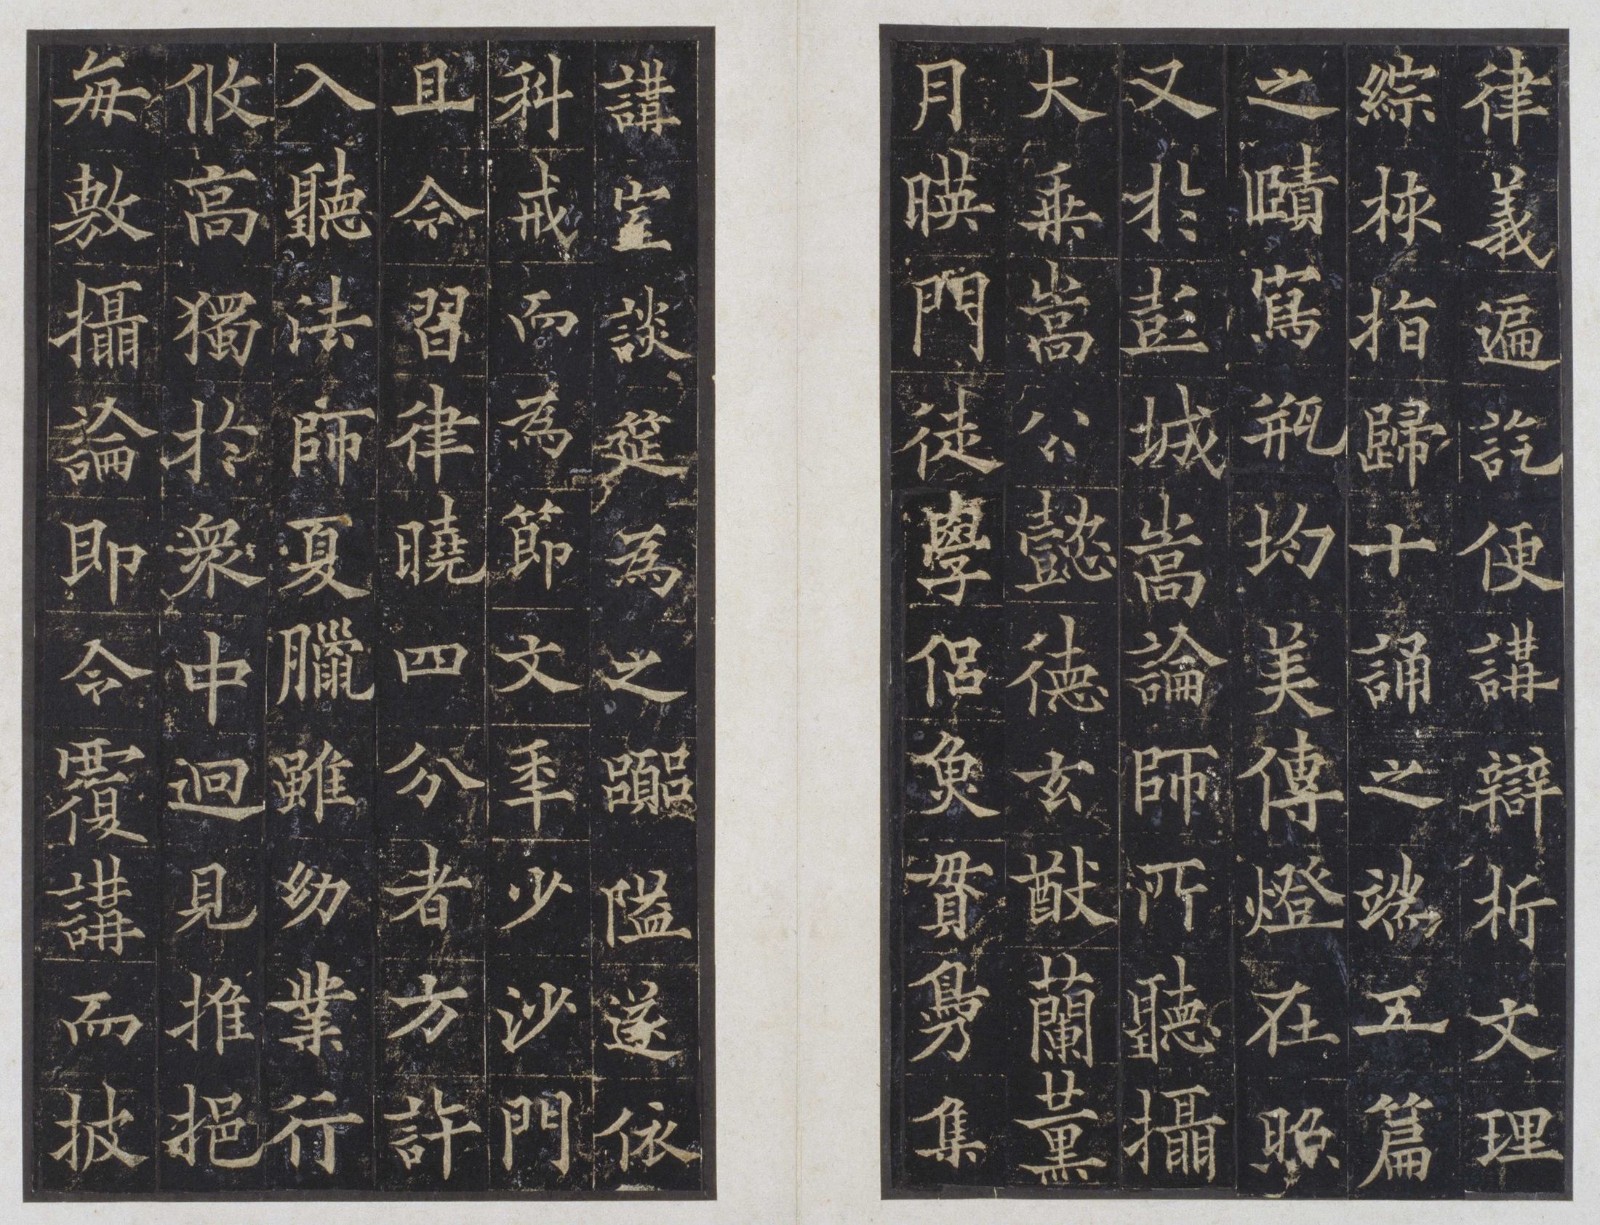 律義遍訖便講辯析文理
綜核指歸十誦之端五篇
之賾寫瓶均美傳燈在照
又於彭城嵩論師所聽攝
大乗嵩公懿德玄猷蘭薰
月暎門徒學侶魚貫鳬集
講室談筵為之嚻隘遂依
科戒而為節文年少沙門
且令習律曉四分者方許
入聽法師夏臘雖幼業行
攸高獨於衆中迥見推挹
每敷攝論即令覆講而披